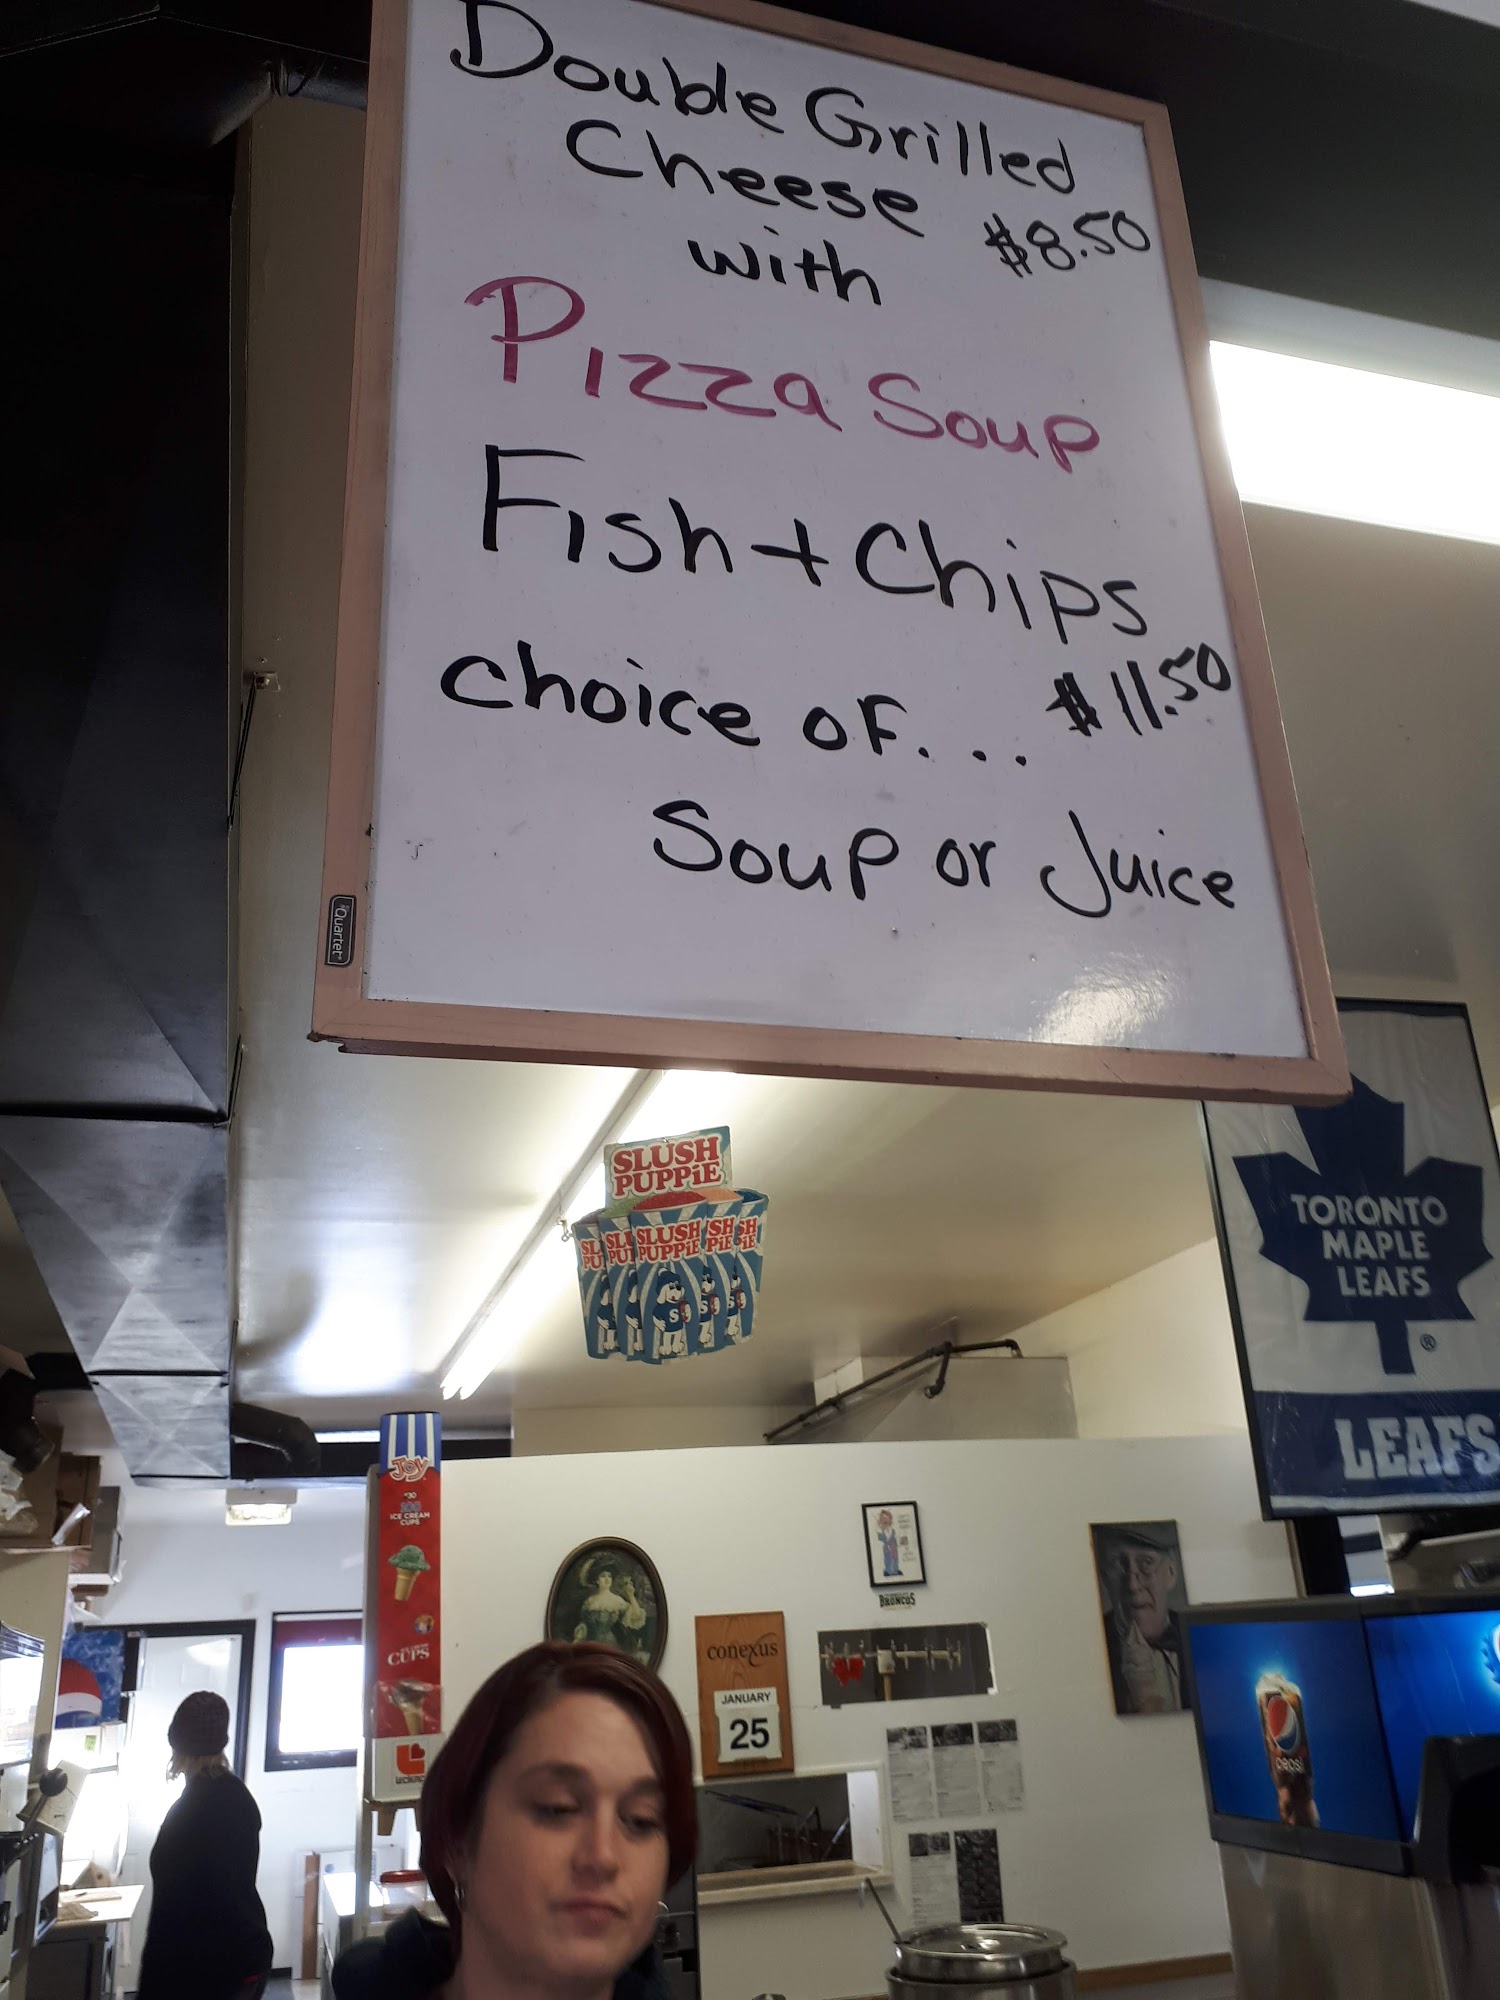 Double Grilled
Cheese $8.50
with
Pizza Soup
Fish + Chips
choice of... $11.50
Soup or Juice
Quartet
SLUSH
PUPPiE
SLUSH
PUPPiE
TORONTO
MAPLE
LEAFS
®
LEAFS
JOY
ICE CREAM
CUPS
CUPS
BRONCOS
conexus
JANUARY
25
pepsi